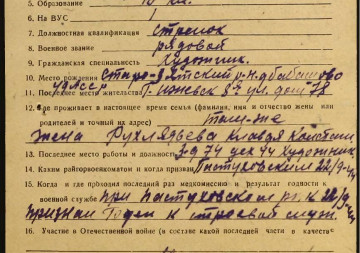 5. Образование
6. № ВУС 1
7. Должностная квалификация стрелок
8. Военное звание рядовой
9. Гражданская специальность художник.
10. Место рождения Старо-
УАССР 11. Постоянное место жительства г. Ижевск ул. дом 78
12. Где проживает в настоящее время семья (фамилия, имя и отчество жены или
родителей и точный их адрес) там-же
жена Рухлядьева Клавдия
13. Последнее место работы и должность з-д 74 цех 74 художник
14. Каким райгорвоенкоматом и когда призван Пастуховским 22/9-
15. Когда и где проходил последний раз медкомиссию и результат годности к
военной службе при Пастуховском 22/9-
признан годен к строевой служ.
16. Участие в Отечественной войне (в составе какой последней части и в качестве